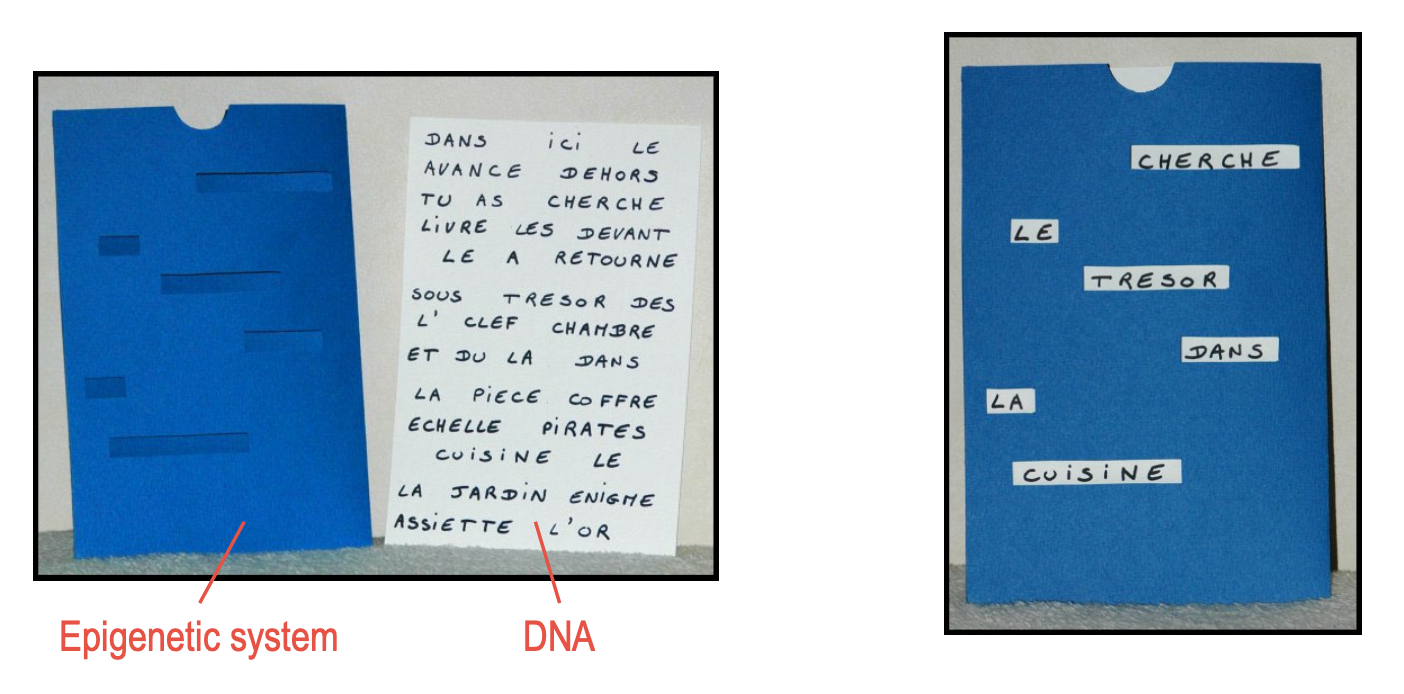 DANS ici LE
AVANCE DEHORS
TU AS CHERCHE
LiVRE LES DEVANT
LE A RETOURNE
SOUS TRESOR DES
L' CLEF CHAMBRE
ET DU LA DANS
LA PiECE COFFRE
ECHELLE PiRATES
CUiSiNE LE
LA JARDiN ENiGME
ASSiETTE L'OR
Epigenetic system
DNA
CHERCHE
LE
TRESOR
DANS
LA
CUiSiNE